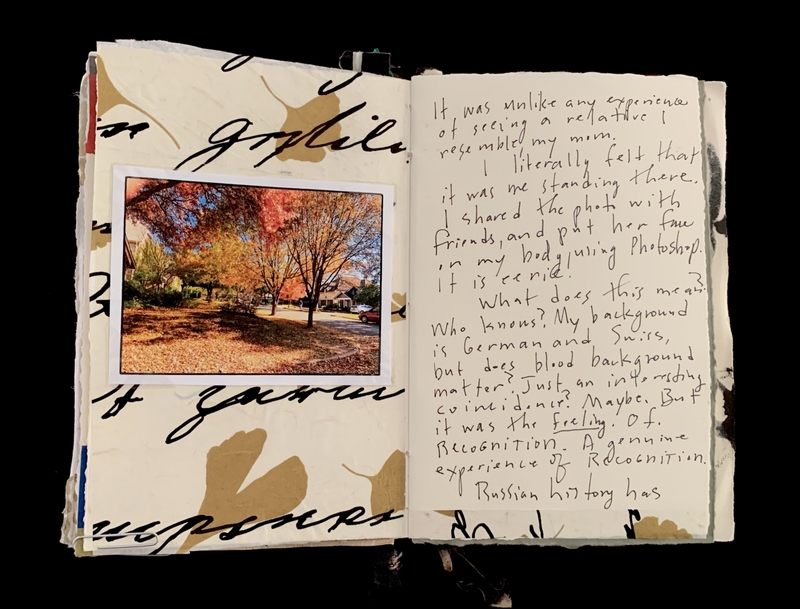 It was unlike any experience
of seeing a relative I
resemble, my mom.
I literally felt that
it was me standing there.
I shared the photo with
friends, and put her face
on my body, using Photoshop.
It is eerie.
What does this mean?
Who knows? My background
is German and Swiss,
but does blood background
matter? Just an interesting
coincidence? Maybe. But
it was the feeling. Of.
RECOGNITION. A genuine
experience of RECOGNITION.
Russian history has